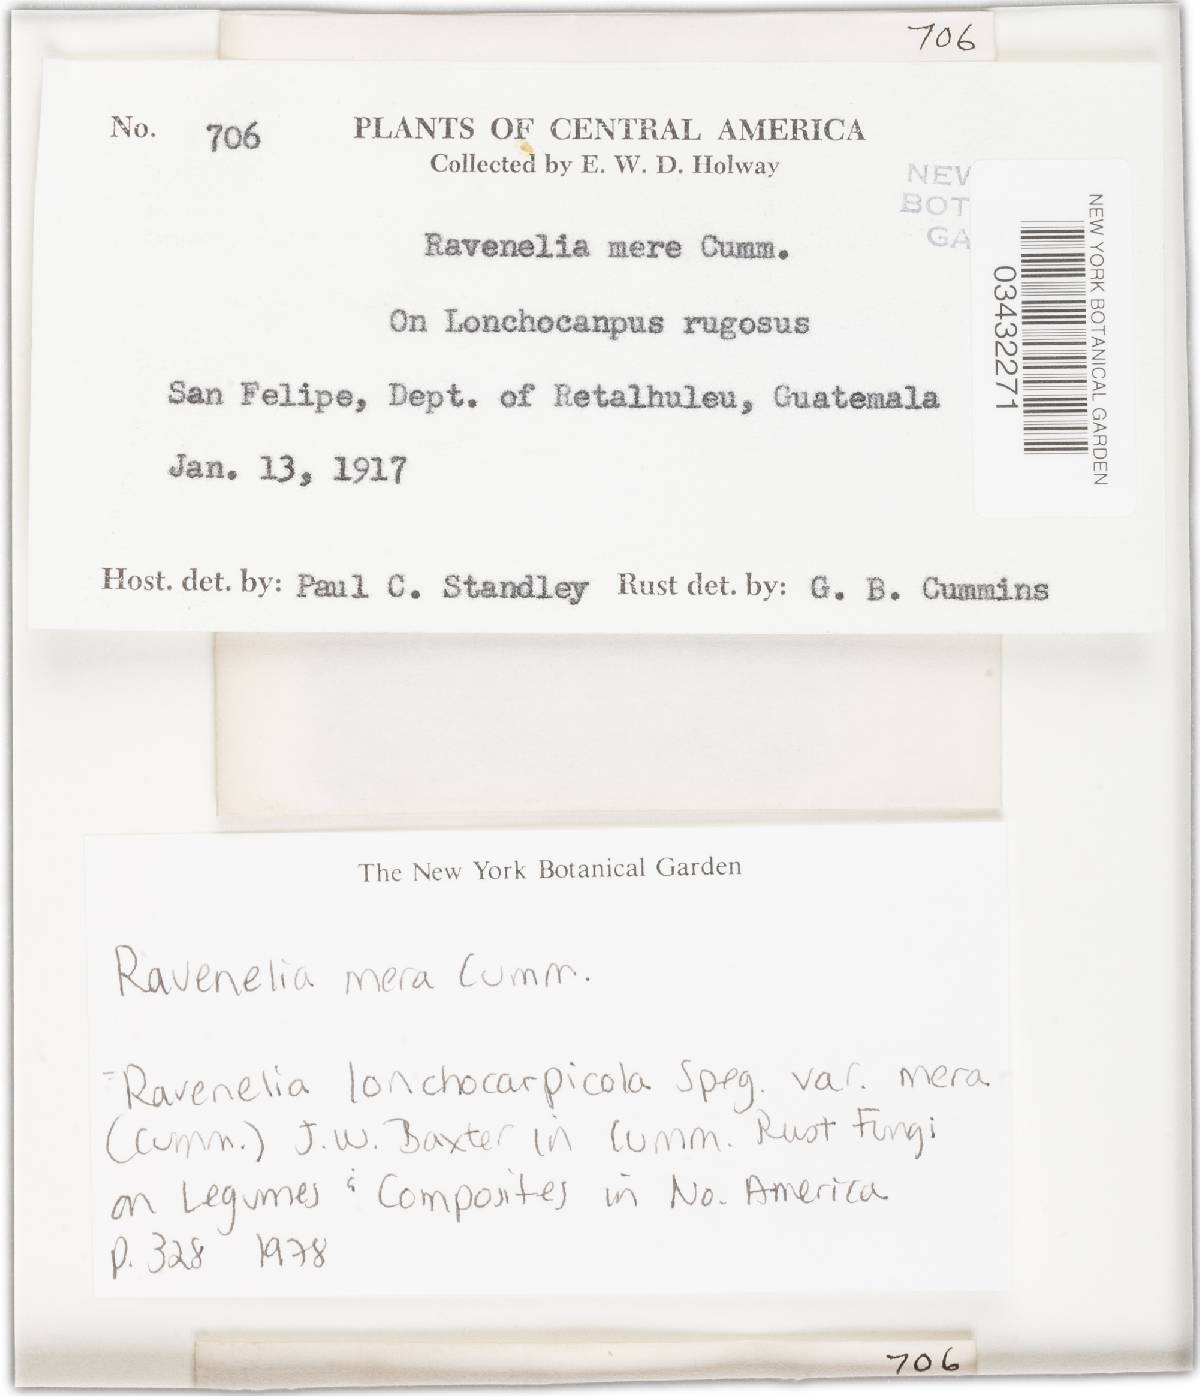 706
No. 706 PLANTS OF CENTRAL AMERICA
Collected by E. W. D. Holway
NEW
BOT
GA
Ravenelia mere Cumm.
On Lonchocanpus rugosus
San Felipe, Dept. of Retalhuleu, Guatemala
Jan. 13, 1917
Host. det. by: Paul C. Standley Rust det. by: G. B. Cummins
NEW YORK BOTANICAL GARDEN
03432271
The New York Botanical Garden
Ravenelia mera Cumm.
=Ravenelia lonchocarpicola Speg. var. mera
(Cumm.) J.W. Baxter in Cumm. Rust Fungi
on Legumes & Composites in No. America
p. 328 1978
706